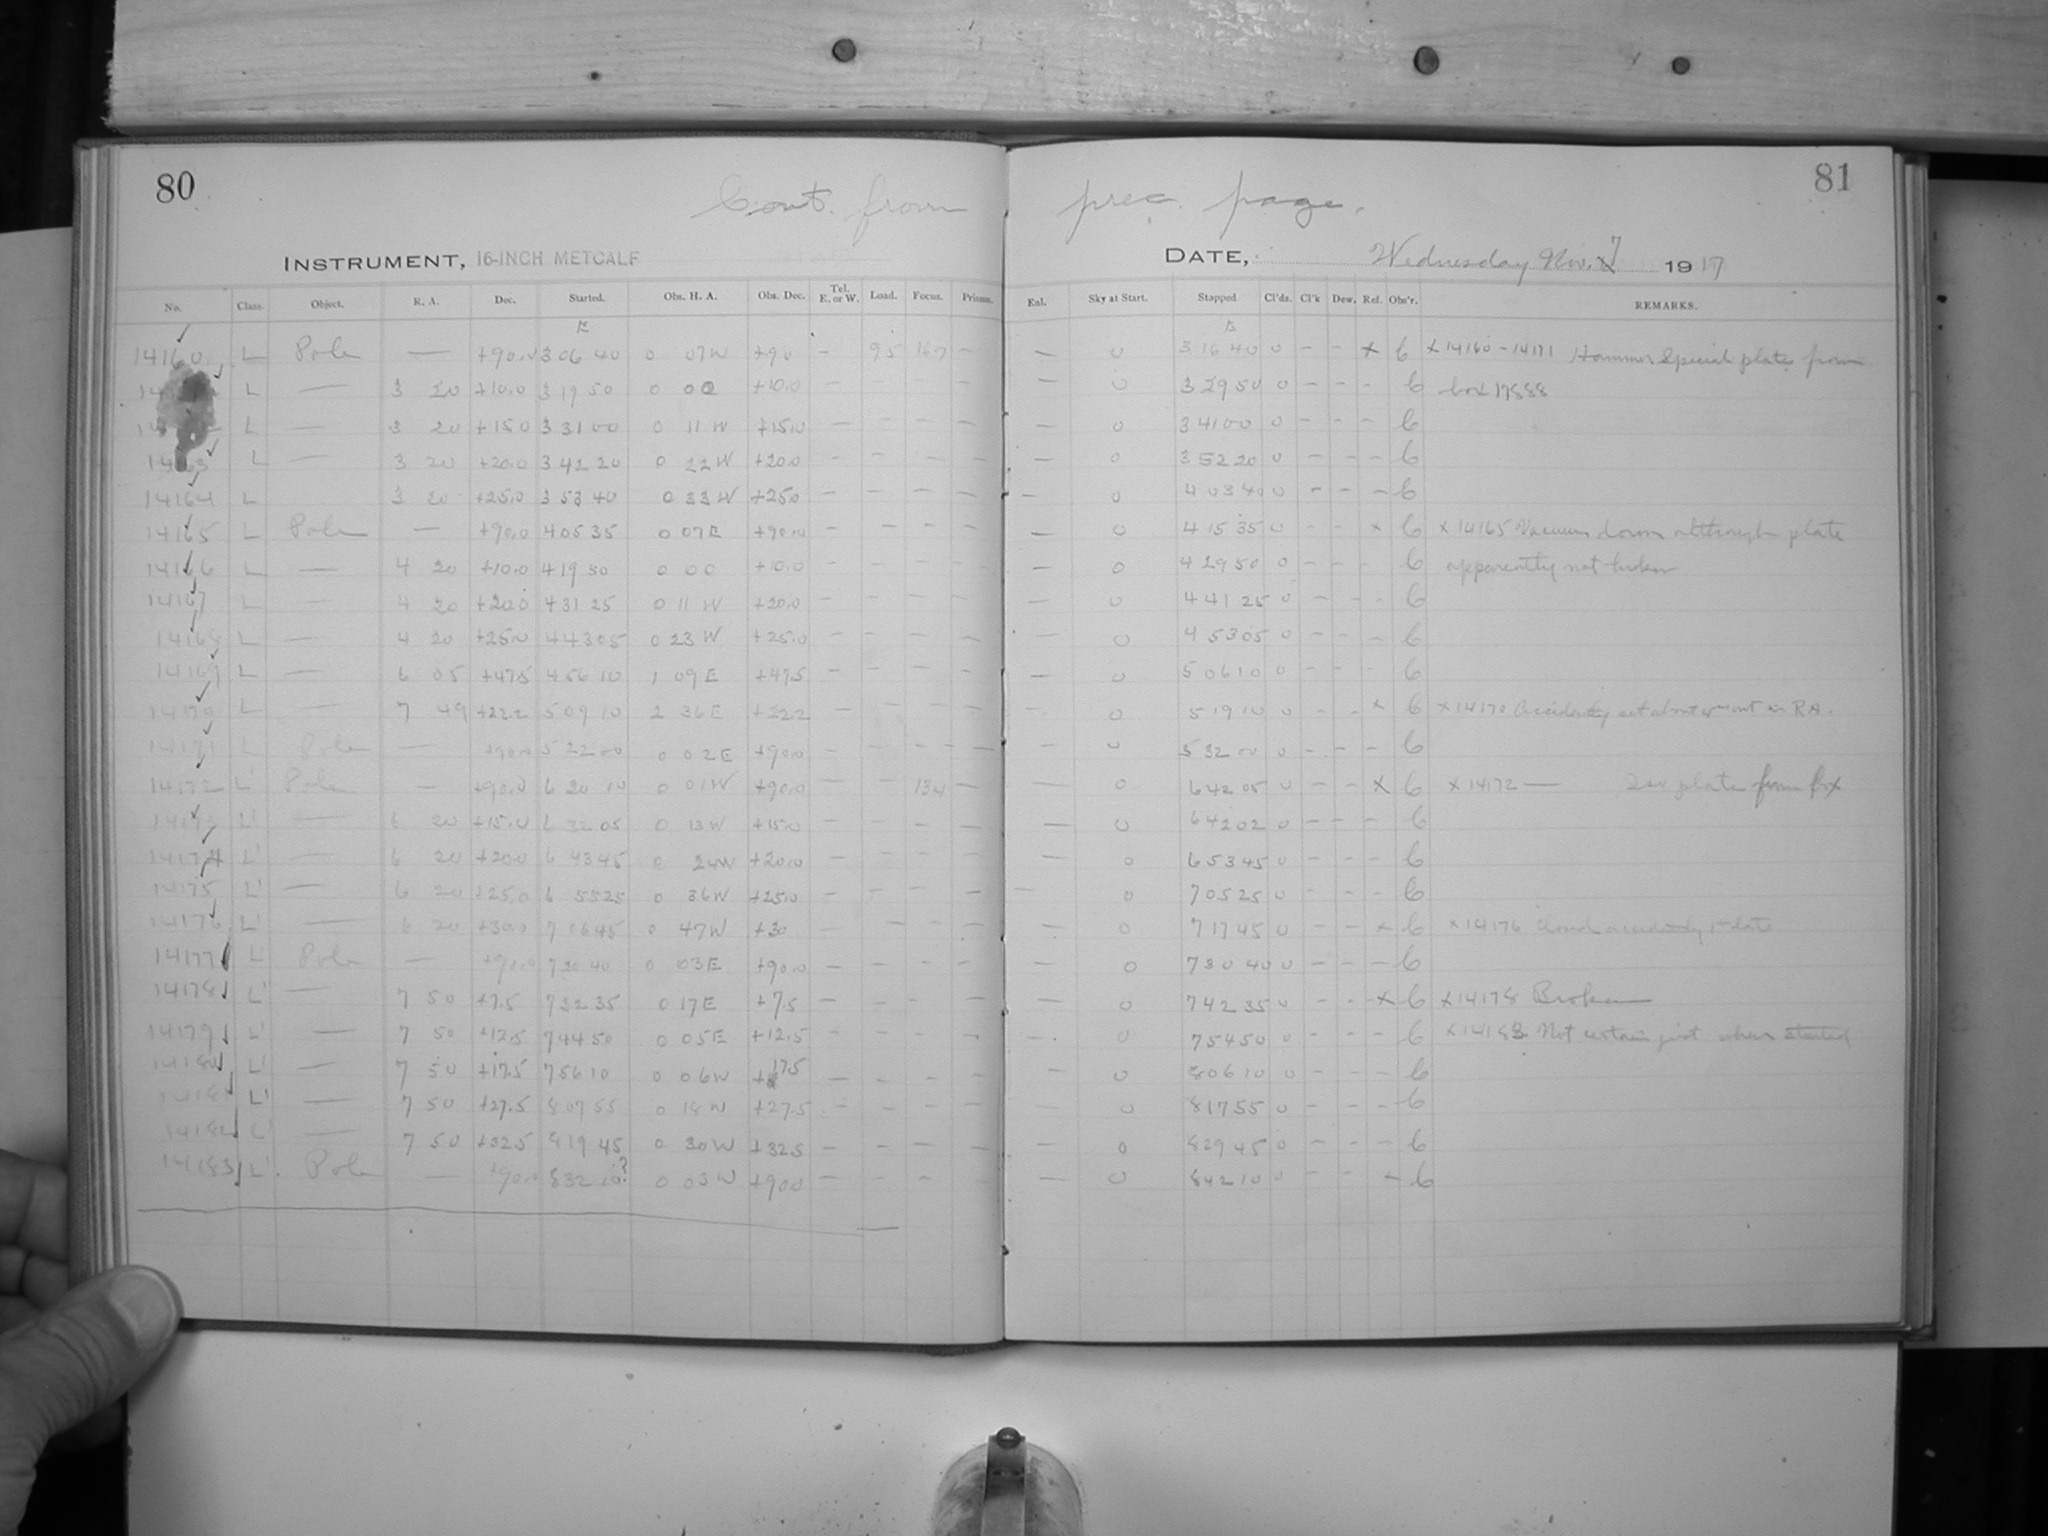 80
81
Cont. from prec. page.
INSTRUMENT, 16-INCH METCALF
DATE, Wednesday Nov. 7 1917
No. Class. Object. R. A. Dec. Started. Obs. H. A. Obs. Dec. Tel. E. or W. Load. Focus. Prisms. Enl. Sky at Start. Stopped Cl'ds. Cl'k Dew. Ref. Obs'r. REMARKS.
14160 L Pole — +90.0 3 06 40 0 07W +90 — 95 167 — — 0 3 16 40 0 — — x 6 x 14160 - 14171 Hammer Special plates from
L — 3 20 +10.0 3 19 50 0 00 +10.0 — — — — — 0 3 29 50 0 — — — 6 box 17888
L — 3 20 +15.0 3 31 00 0 11 W +15.0 — — — — — 0 3 41 00 0 — — — 6
L — 3 20 +20.0 3 42 20 0 22 W +20.0 — — — — — 0 3 52 20 0 — — — 6
14164 L 3 20 +25.0 3 53 40 0 33 W +25.0 — — — — — 0 4 03 40 0 — — — 6
14165 L Pole — +90.0 4 05 35 0 07E +90.0 — — — — — 0 4 15 35 0 — — x 6 x 14165 Vacuum down although plate
14166 L — 4 20 +10.0 4 19 50 0 00 +10.0 — — — — — 0 4 29 50 0 — — 6 apparently not broken
14167 L — 4 20 +20.0 4 31 25 0 11 W +20.0 — — — — — 0 4 41 25 0 — — — 6
14168 L — 4 20 +25.0 4 43 05 0 23 W +25.0 — — — — — 0 4 53 05 0 — — — 6
14169 L — 6 05 +47.5 4 56 10 1 09 E +47.5 — — — — — 0 5 06 10 0 — — — 6
14170 L — 7 49 +22.2 5 09 10 2 36E +22.2 — — — — — 0 5 19 10 0 — — x 6 x 14170 in R A.
14171 L Pole — +90.0 5 22 00 0 02E +90.0 — — — — — 0 5 32 00 0 — — — 6
14172 L' Pole — +90.0 6 20 10 0 01W +90.0 — — 134 — — 0 6 42 05 0 — — x 6 x 14172 — plate from box
14173 L' — 6 20 +15.0 6 32 05 0 13W +15.0 — — — — — 0 6 42 02 0 — — — 6
14174 L' — 6 20 +20.0 6 43 45 0 24W +20.0 — — — — — 0 6 53 45 0 — — — 6
14175 L' — 6 20 +25.0 6 55 25 0 36W +25.0 — — — — — 0 7 05 25 0 — — — 6
14176 L' — 6 20 +30.0 7 06 45 0 47W +30 — — — — — 0 7 17 45 0 — — x 6 x 14176 Closed accidently 1m late
14177 L' Pole — +90.0 7 20 40 0 03E +90.0 — — — — — 0 7 30 40 0 — — — 6
14178 L' — 7 50 +7.5 7 32 35 0 17E +7.5 — — — — — 0 7 42 35 0 — — x 6 x 14178 Broken
14179 L' — 7 50 +12.5 7 44 50 0 05E +12.5 — — — — — 0 7 54 50 0 — — — 6 x 14183 Not certain just when started
14180 L' — 7 50 +17.5 7 56 10 0 06W +17.5 — — — — — 0 8 06 10 0 — — — 6
14181 L' — 7 50 +27.5 8 07 55 0 18W +27.5 — — — — — 0 8 17 55 0 — — — 6
14182 L' — 7 50 +32.5 8 19 45 0 30W +32.5 — — — — — 0 8 29 45 0 — — — 6
14183 L' Pole — +90.0 8 32 10? 0 03W +90.0 — — — — — 0 8 42 10 0 — — — 6